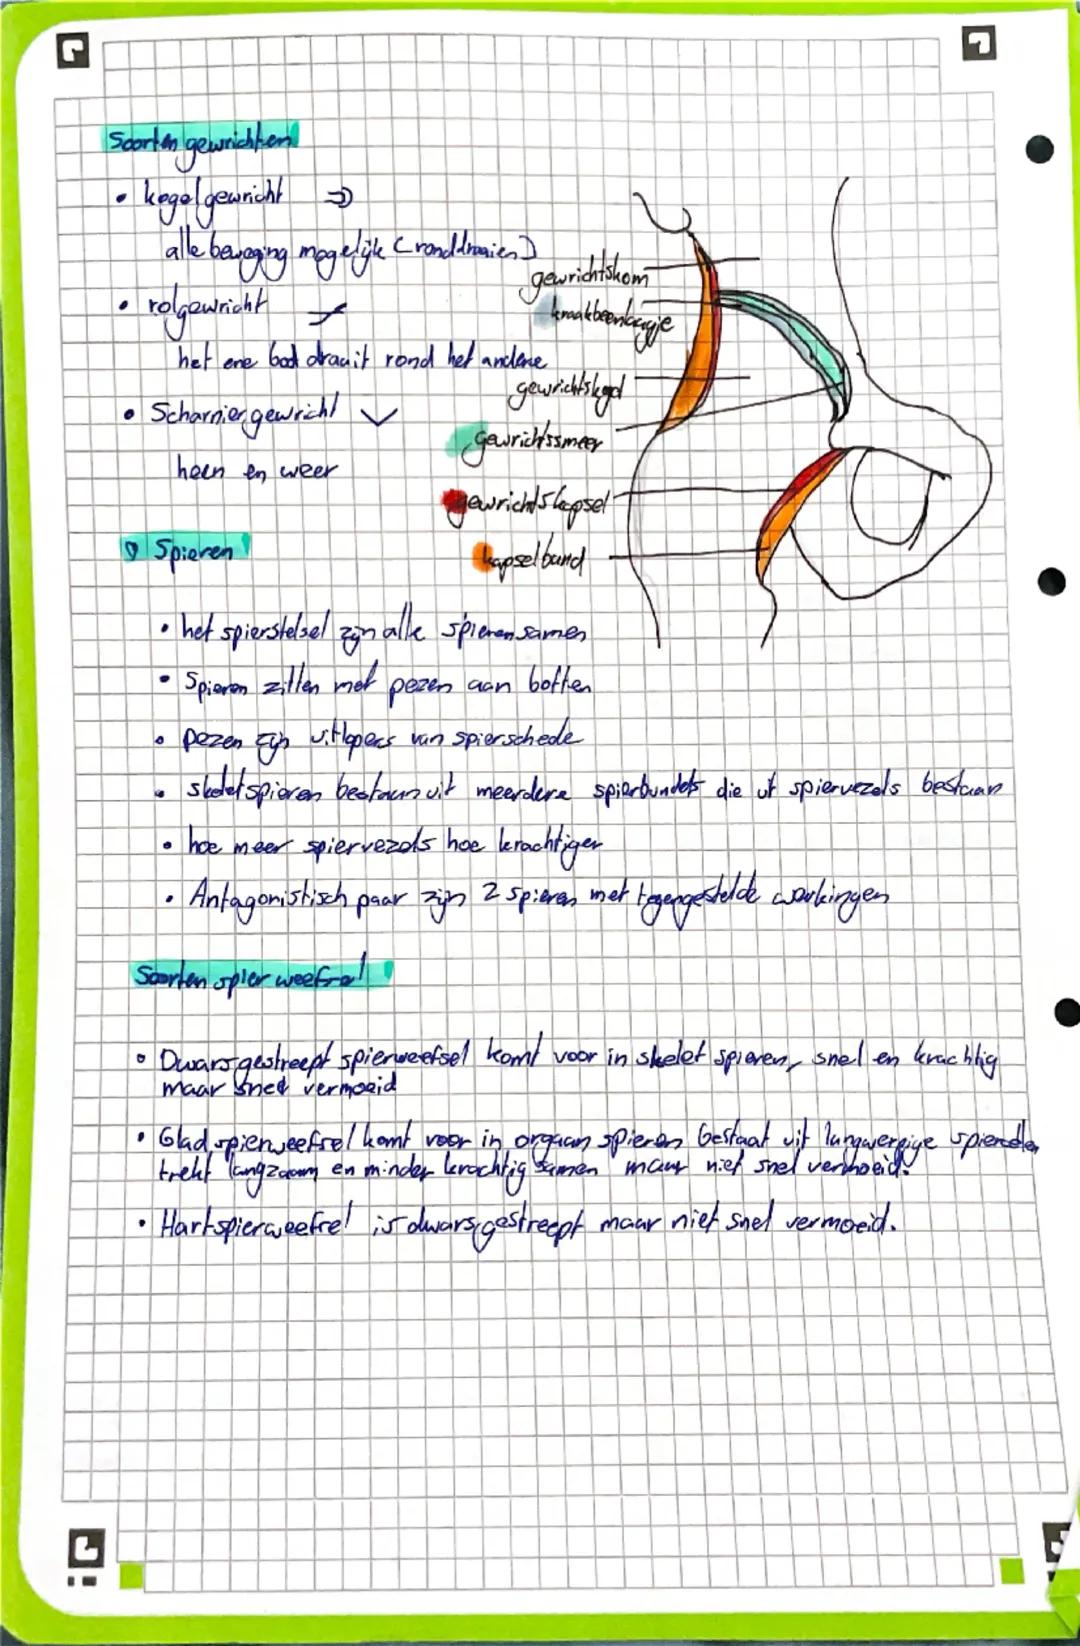 Soorten gewrichten
• kogelgewricht
alle beweging mogelijk (ronddraaien)
• rolgewricht
het ene bod draait rond het andere
• Scharniergewricht
heen en weer
gewrichtskom
kraakbeenlaagje
gewrichtskogel
gewrichtssmeer
gewrichtskapsel
kapselband
Spieren
• het spierstelsel zijn alle spieren samen
• Spieren zitten met pezen aan botten
• pezen zijn uitlopers van spierschede
• skeletspieren bestaan uit meerdere spierbundels die uit spiervezels bestaan
• hoe meer spiervezels hoe krachtiger
• Antagonistisch paar zijn 2 spieren met tegengestelde werkingen
Soorten spierweefsel
• Dwarsgestreept spierweefsel komt voor in skelet spieren, snel en krachtig
maar snel vermoeid
• Glad spierweefsel komt voor in orgaan spieren bestaat uit langwerpige spiercellen
trekt langzaam en minder krachtig samen maar niet snel vermoeid.
• Hartspierweefsel is dwarsgestreept maar niet snel vermoeid.